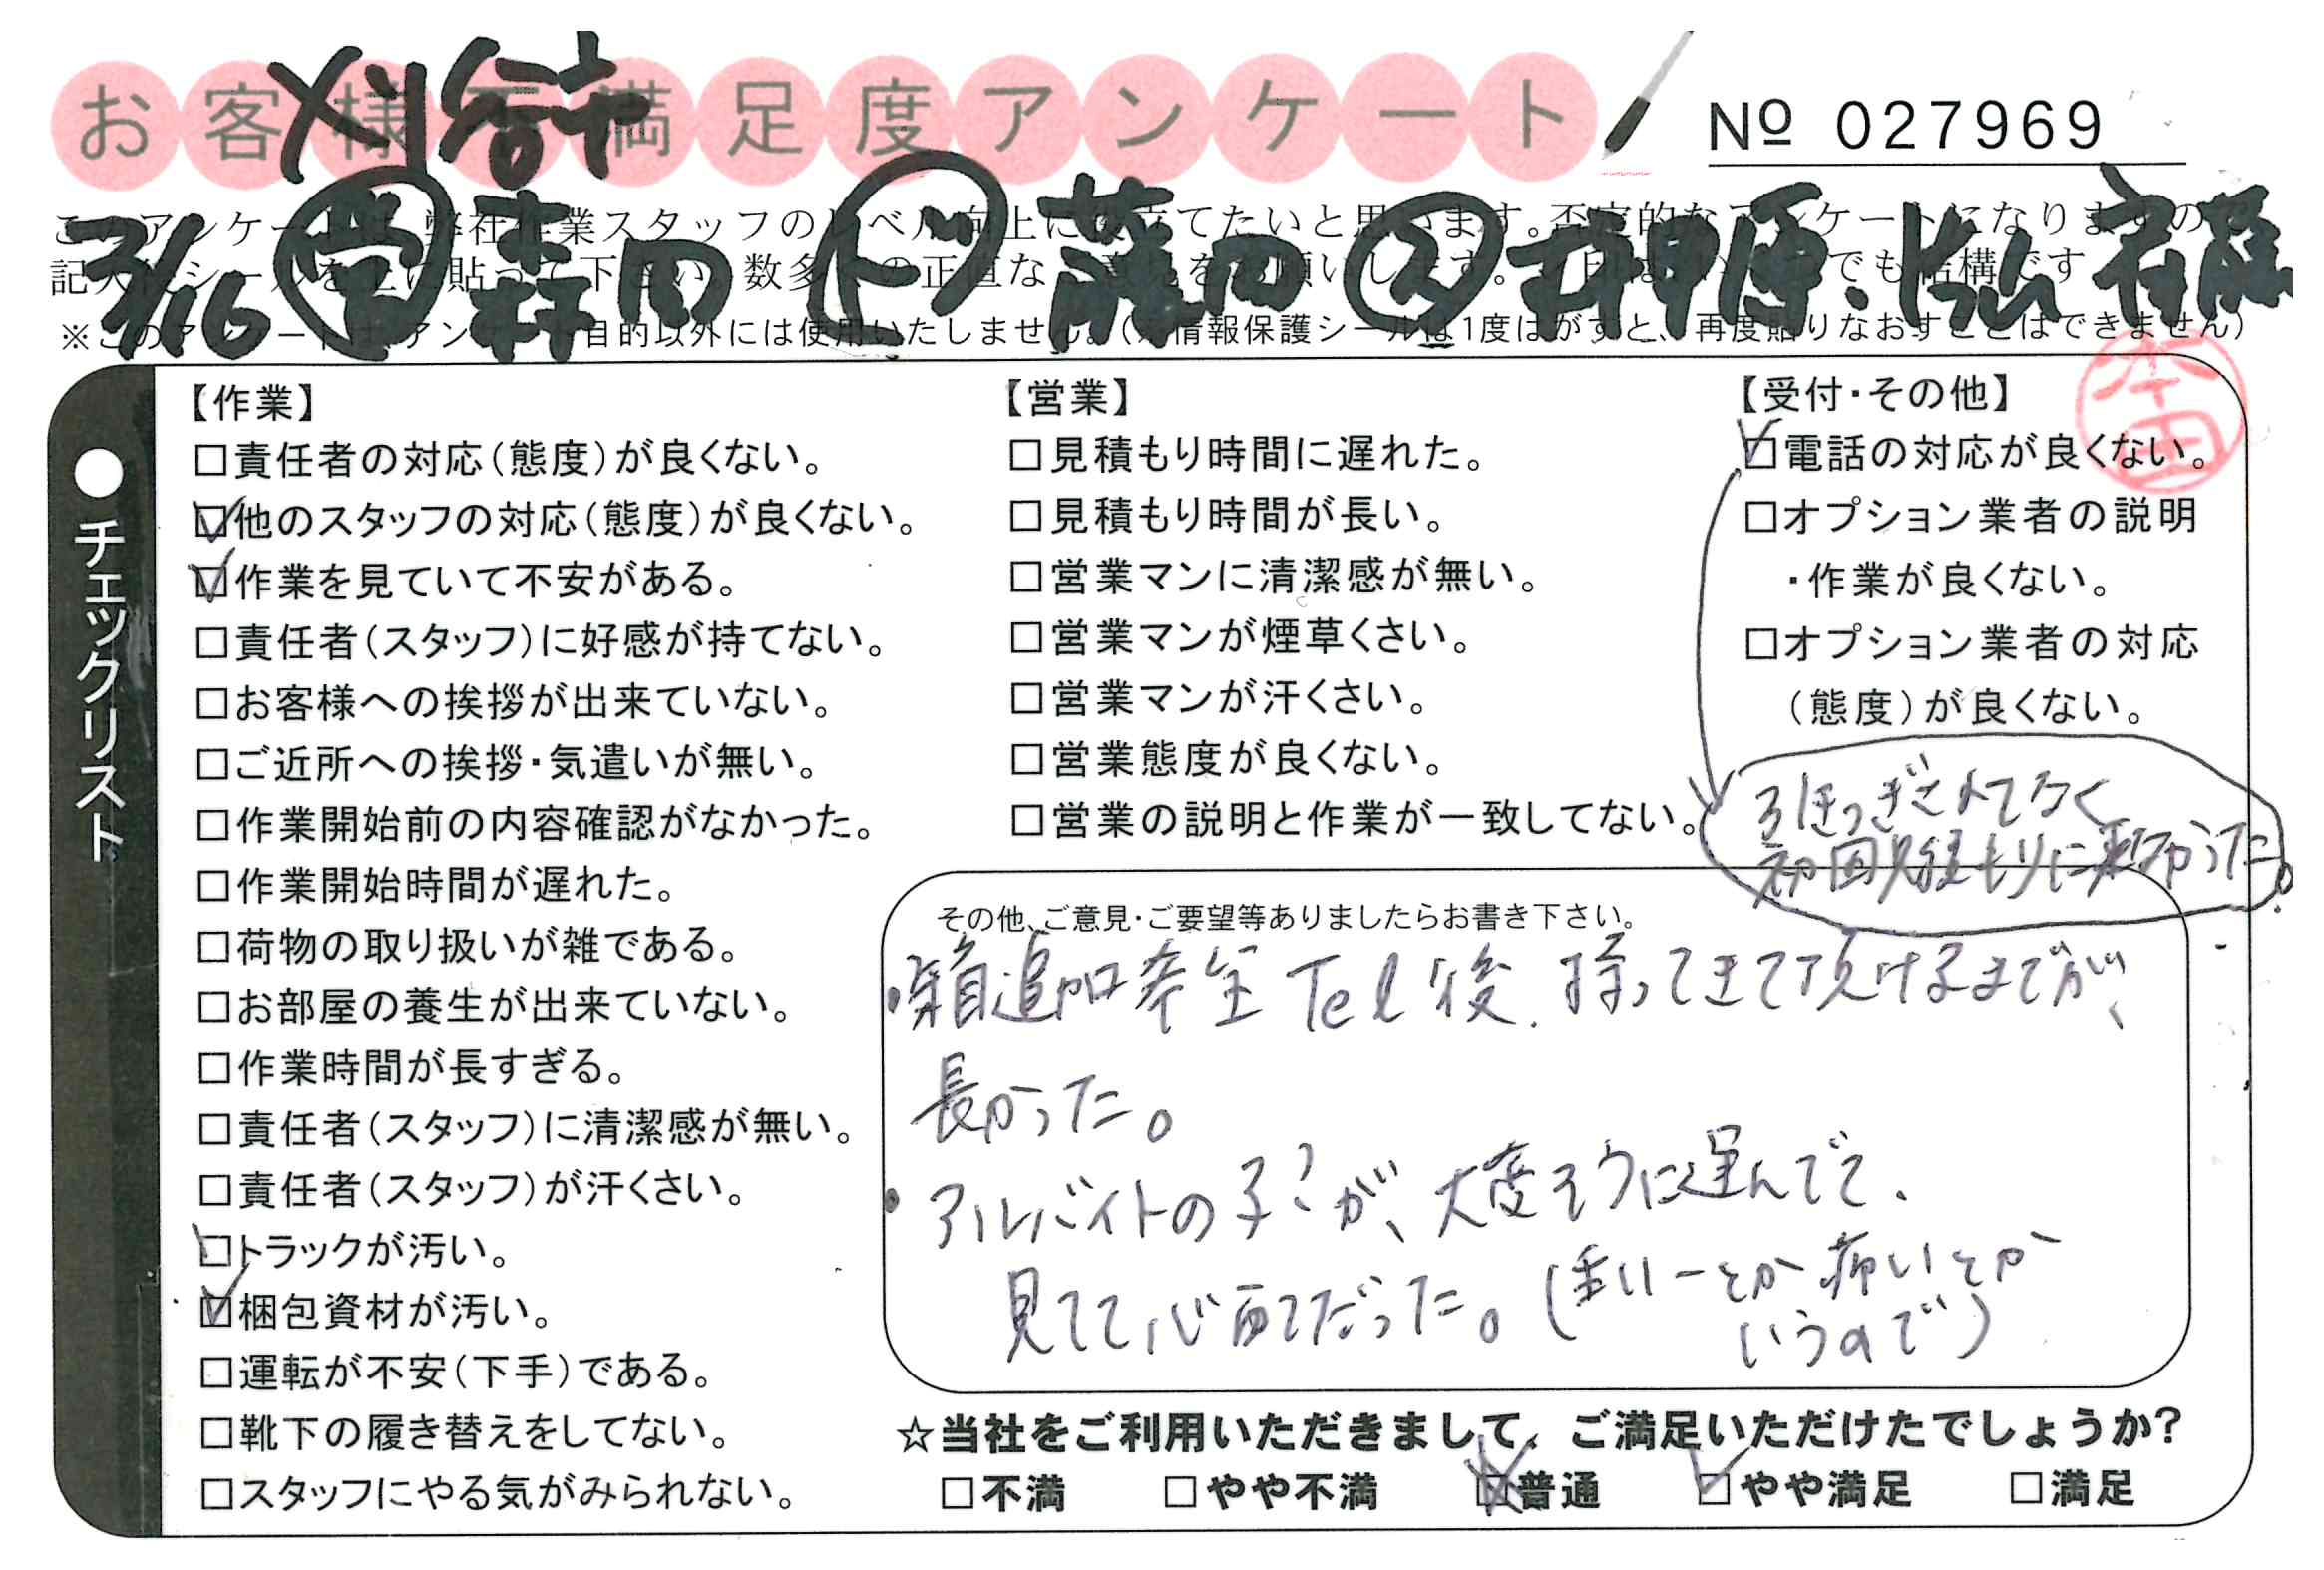 お客様不満足度アンケート
刈谷市
№ 027969
このアンケートは、弊社作業スタッフのレベル向上に役立てたいと思います。否定的なアンケートになりますの
記入 シールを上に貼って下さい。数多くの正直な ご意見をお願いします。 でも結構です
※このアンケートは、アンケート目的以外には使用いたしません。(※情報保護シールは1度はがすと、再度貼りなおすことはできません)
3/16 営 森田 ド 藤田 ス 押原・
本田
●チェックリスト
【作業】
□責任者の対応(態度)が良くない。
☑他のスタッフの対応(態度)が良くない。
☑作業を見ていて不安がある。
□責任者(スタッフ)に好感が持てない。
□お客様への挨拶が出来ていない。
□ご近所への挨拶・気遣いが無い。
□作業開始前の内容確認がなかった。
□作業開始時間が遅れた。
□荷物の取り扱いが雑である。
□お部屋の養生が出来ていない。
□作業時間が長すぎる。
□責任者(スタッフ)に清潔感が無い。
□責任者(スタッフ)が汗くさい。
□トラックが汚い。
☑梱包資材が汚い。
□運転が不安(下手)である。
□靴下の履き替えをしてない。
□スタッフにやる気がみられない。
【営業】
□見積もり時間に遅れた。
□見積もり時間が長い。
□営業マンに清潔感が無い。
□営業マンが煙草くさい。
□営業マンが汗くさい。
□営業態度が良くない。
□営業の説明と作業が一致してない。
【受付・その他】
☑電話の対応が良くない。
□オプション業者の説明
・作業が良くない。
□オプション業者の対応
(態度)が良くない。
引きつぎされてなく
初回見積もりに来なかった。
その他、ご意見・ご要望等ありましたらお書き下さい。
・箱追加希望Tel後、持ってきて頂けるまでが、
長かった。
・アルバイトの子?が、大変そうに運んでて、
見てて心配だった。(重いーとか痛いとか
いうので)
☆当社をご利用いただきまして、ご満足いただけたでしょうか?
□不満 □やや不満 ☒普通 ☑やや満足 □満足